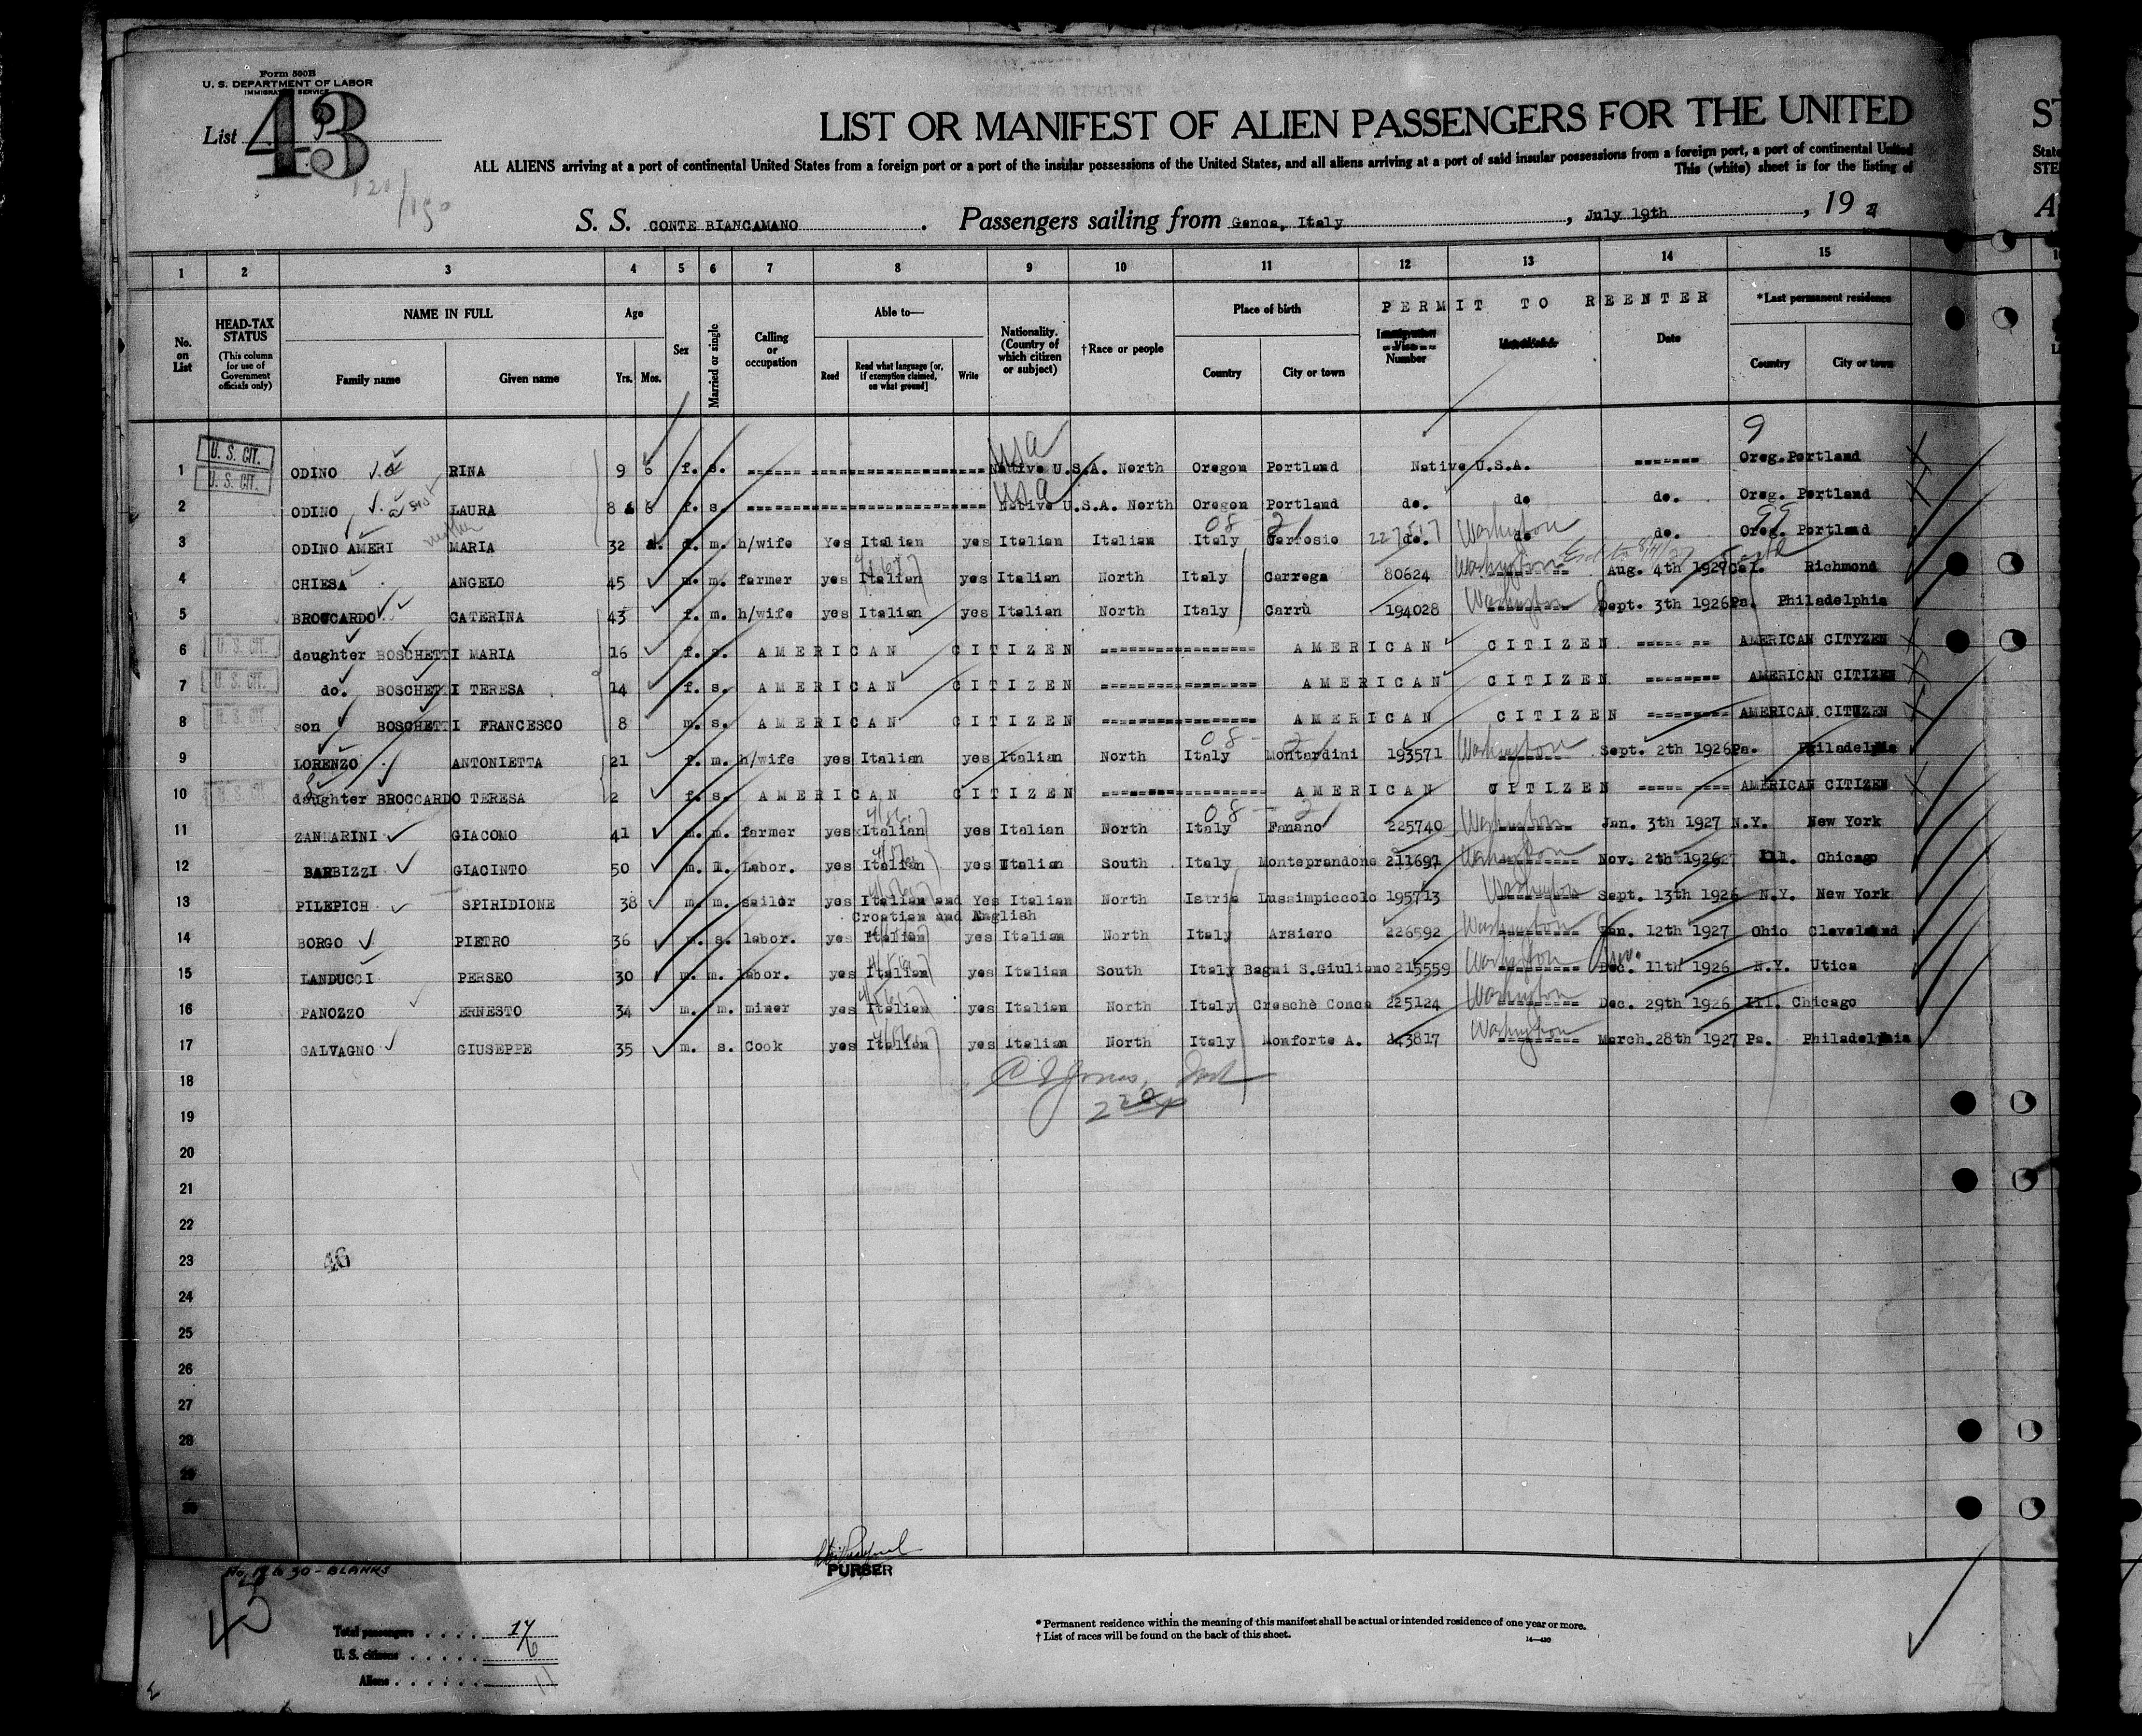 Form 500B
U. S. DEPARTMENT OF LABOR
IMMIGRATION SERVICE
List 43
LIST OR MANIFEST OF ALIEN PASSENGERS FOR THE UNITED
ST
ALL ALIENS arriving at a port of continental United States from a foreign port or a port of the insular possessions of the United States, and all aliens arriving at a port of said insular possessions from a foreign port, a port of continental United
State
This (white) sheet is for the listing of
STE
S. S. CONTE BIANCAMANO. Passengers sailing from Genoa, Italy, July 19th, 19 2
A
1 2 3 4 5 6 7 8 9 10 11 12 13 14 15
No. on List
HEAD-TAX STATUS (This column for use of Government officials only)
NAME IN FULL
Family name Given name
Age
Yrs. Mos.
Sex
Married or single
Calling or occupation
Able to—
Read Read what language [or, if exemption claimed, on what ground] Write
Nationality. (Country of which citizen or subject)
†Race or people
Place of birth
Country City or town
PERMIT TO REENTER
Immigration Visa Number
Date
*Last permanent residence
Country City or town
9
1 U. S. CIT. ODINO RINA 9 6 f. s. USA Native U.S.A. North Oregon Portland Native U.S.A. Oreg. Portland
2 U. S. CIT. ODINO LAURA 8 6 f. s. USA Native U.S.A. North Oregon Portland do. do do. Oreg. Portland
3 ODINO AMERI mother MARIA 32 f. m. h/wife Yes Italian yes Italian Italian Italy do. Washington do do. Oreg. Portland 99
4 CHIESA ANGELO 45 m. m. farmer yes Italian yes Italian North Italy Carrega 80624 Washington Aug. 4th 1927 Cal. Richmond
5 BROCCARDO CATERINA 43 f. m. h/wife yes Italian yes Italian North Italy Carrù 194028 Washington Sept. 3th 1926 Pa. Philadelphia
6 U. S. CIT. daughter BOSCHETTI MARIA 16 f. s. AMERICAN CITIZEN AMERICAN CITIZEN AMERICAN CITYZEN
7 U. S. CIT. do. BOSCHETTI TERESA 14 f. s. AMERICAN CITIZEN AMERICAN CITIZEN AMERICAN CITIZEN
8 U. S. CIT son BOSCHETTI FRANCESCO 8 m. s. AMERICAN CITIZEN AMERICAN CITIZEN AMERICAN CITIZEN
9 LORENZO ANTONIETTA 21 f. m. h/wife yes Italian yes Italian North Italy Montardini 193571 Washington Sept. 2th 1926 Pa. Philadelphia
10 U. S. CIT daughter BROCCARDO TERESA 2 f. s. AMERICAN CITIZEN AMERICAN CITIZEN AMERICAN CITIZEN
11 ZANMARINI GIACOMO 41 m. m. farmer yes Italian yes Italian North Italy Fanano 225740 Washington Jan. 3th 1927 N.Y. New York
12 BARBIZZI GIACINTO 50 m. m. Labor. yes Italian yes Italian South Italy Monteprandone 211691 Washington Nov. 2th 1926 Ill. Chicago
13 PILEPICH SPIRIDIONE 38 m. m. sailor yes Italian and Yes Italian North Istria Lussimpiccolo 195713 Washington Sept. 13th 1926 N.Y. New York
Croatian and English
14 BORGO PIETRO 36 m. s. labor. yes Italian yes Italian North Italy Arsiero 226592 Washington Jan. 12th 1927 Ohio Cleveland
15 LANDUCCI PERSEO 30 m. m. labor. yes Italian yes Italian South Italy Bagni S.Giuliano 215559 Washington Dec. 11th 1926 N.Y. Utica
16 PANOZZO ERNESTO 34 m. m. miner yes Italian yes Italian North Italy Creschè Conca 225124 Washington Dec. 29th 1926 Ill. Chicago
17 CALVAGNO GIUSEPPE 35 m. s. Cook yes Italian yes Italian North Italy Monforte A. 243817 Washington March. 28th 1927 Pa. Philadelphia
18
19
20
21
22
23 46
24
25
26
27
28
29
30
PURSER
No. 18 to 30 - BLANKS
43
Total passengers . . . . 17
U. S. citizens . . . . . 6
Aliens . . . . . . 11
* Permanent residence within the meaning of this manifest shall be actual or intended residence of one year or more.
† List of races will be found on the back of this sheet.
14—430